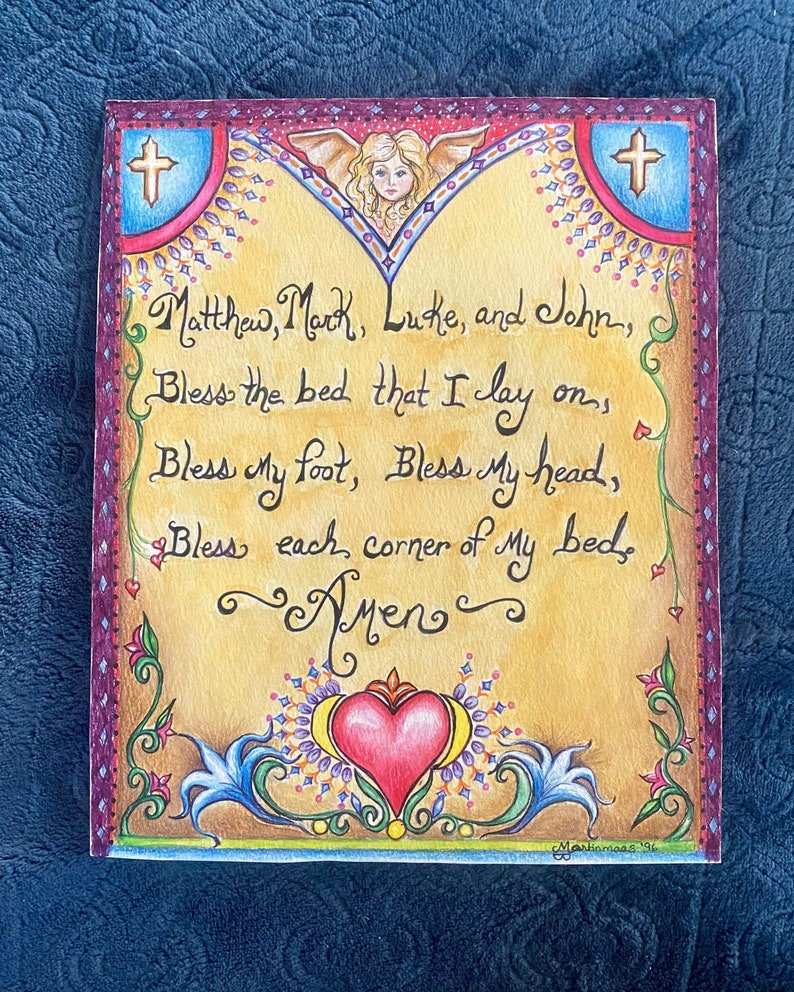 Matthew, Mark, Luke, and John,
Bless the bed that I lay on,
Bless My foot, Bless My head,
Bless each corner of My bed.
Amen
Martinmaas '96